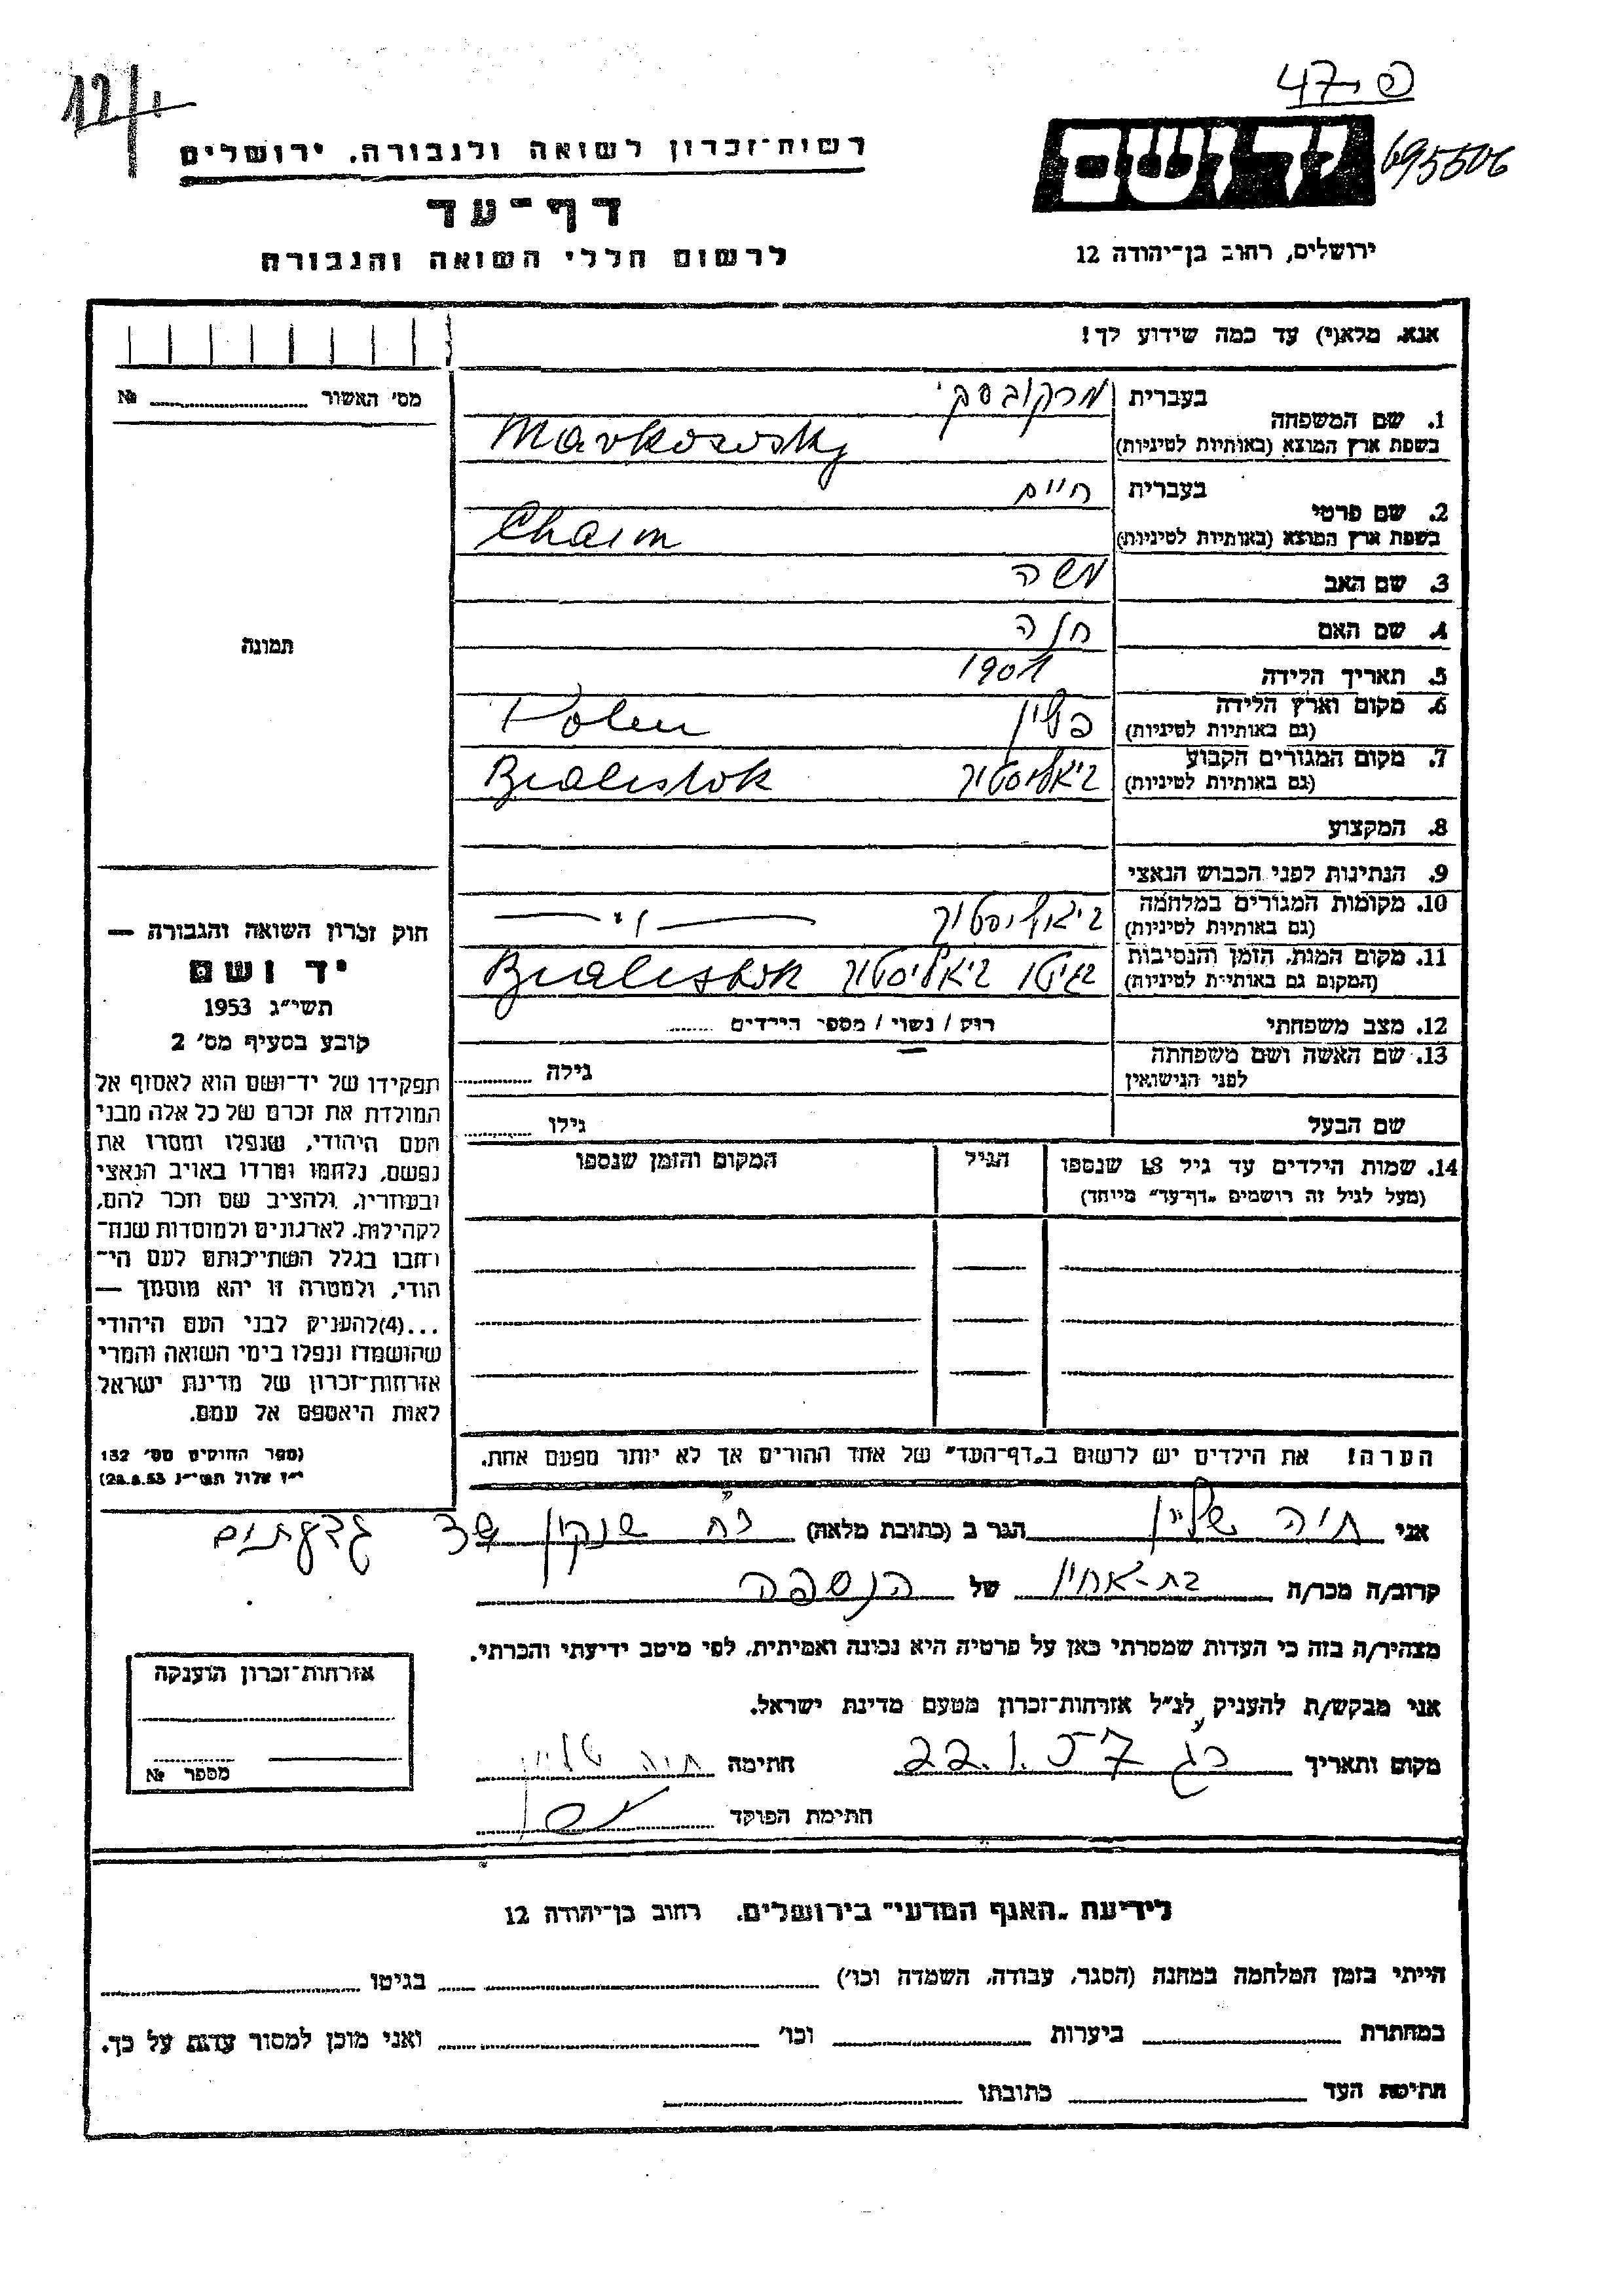 12/1
פ-47
695506
יד ושם
ירושלים, רחוב בן־יהודה 12
רשות־זכרון לשואה ולגבורה, ירושלים
דף־עד
לרשום חללי השואה והגבורה
אנא, מלא(י) עד כמה שידוע לך!
מס' האשור № 
תמונה
1. שם המשפחה בעברית מרקובסקי
בשפת ארץ המוצא (באותיות לטיניות) Markowsky
2. שם פרטי בעברית חיים
בשפת ארץ המוצא (באותיות לטיניות) Chaim
3. שם האב משה
4. שם האם חנה
5. תאריך הלידה 1901
6. מקום וארץ הלידה פולין Polen
(גם באותיות לטיניות)
7. מקום המגורים הקבוע ביאליסטוק Bialistok
(גם באותיות לטיניות)
8. המקצוע
9. הנתינות לפני הכבוש הנאצי
10. מקומות המגורים במלחמה ביאליסטוק — " —
(גם באותיות לטיניות)
11. מקום המות, הזמן והנסיבות בגיטו ביאליסטוק Bialistok
(המקום גם באותיות לטיניות)
12. מצב משפחתי רוק / נשוי / מספר הילדים
13. שם האשה ושם משפחתה גילה
לפני הנישואין
שם הבעל גילו
14. שמות הילדים עד גיל 18 שנספו הגיל המקום והזמן שנספו
(מעל לגיל זה רושמים „דף־עד״ מיוחד)
הערה! את הילדים יש לרשום ב„דף־העד״ של אחד ההורים אך לא יותר מפעם אחת.
חוק זכרון השואה והגבורה —
יד ושם
תשי״ג 1953
קובע בסעיף מס' 2
תפקידו של יד־ושם הוא לאסוף אל
המולדת את זכרם של כל אלה מבני
העם היהודי, שנפלו ומסרו את
נפשם, נלחמו ומרדו באויב הנאצי
ובעוזריו, ולהציב שם וזכר להם,
לקהילות, לארגונים ולמוסדות שנח־
רחבו בגלל השתייכותם לעם הי־
הודי, ולמטרה זו יהא מוסמך —
...(4)להעניק לבני העם היהודי
שהושמדו ונפלו בימי השואה והמרי
אזרחות־זכרון של מדינת ישראל
לאות היאספם אל עמם.
(ספר החוקים מס' 132
י״ז אלול תשי״ג 28.8.53)
אני חיה הגר ב (כתובת מלאה) רח' שנקין גבעתיים
קרוב/ה מכר/ה בת-אחיו של הנספה
מצהיר/ה בזה כי העדות שמסרתי כאן על פרטיה היא נכונה ואמיתית, לפי מיטב ידיעתי והכרתי.
אני מבקש/ת להעניק לנ״ל אזרחות־זכרון מטעם מדינת ישראל.
מקום ותאריך 22.1.57 חתימה חיה
חתימת הפוקד
אזרחות־זכרון הוענקה
מספר №
לידיעת „האגף המדעי״ בירושלים, רחוב בן־יהודה 12
הייתי בזמן המלחמה במחנה (הסגר, עבודה, השמדה וכו') בגיטו
במחתרת ביערות וכו' ואני מוכן למסור עדות על כך.
חתימת העד כתובתו